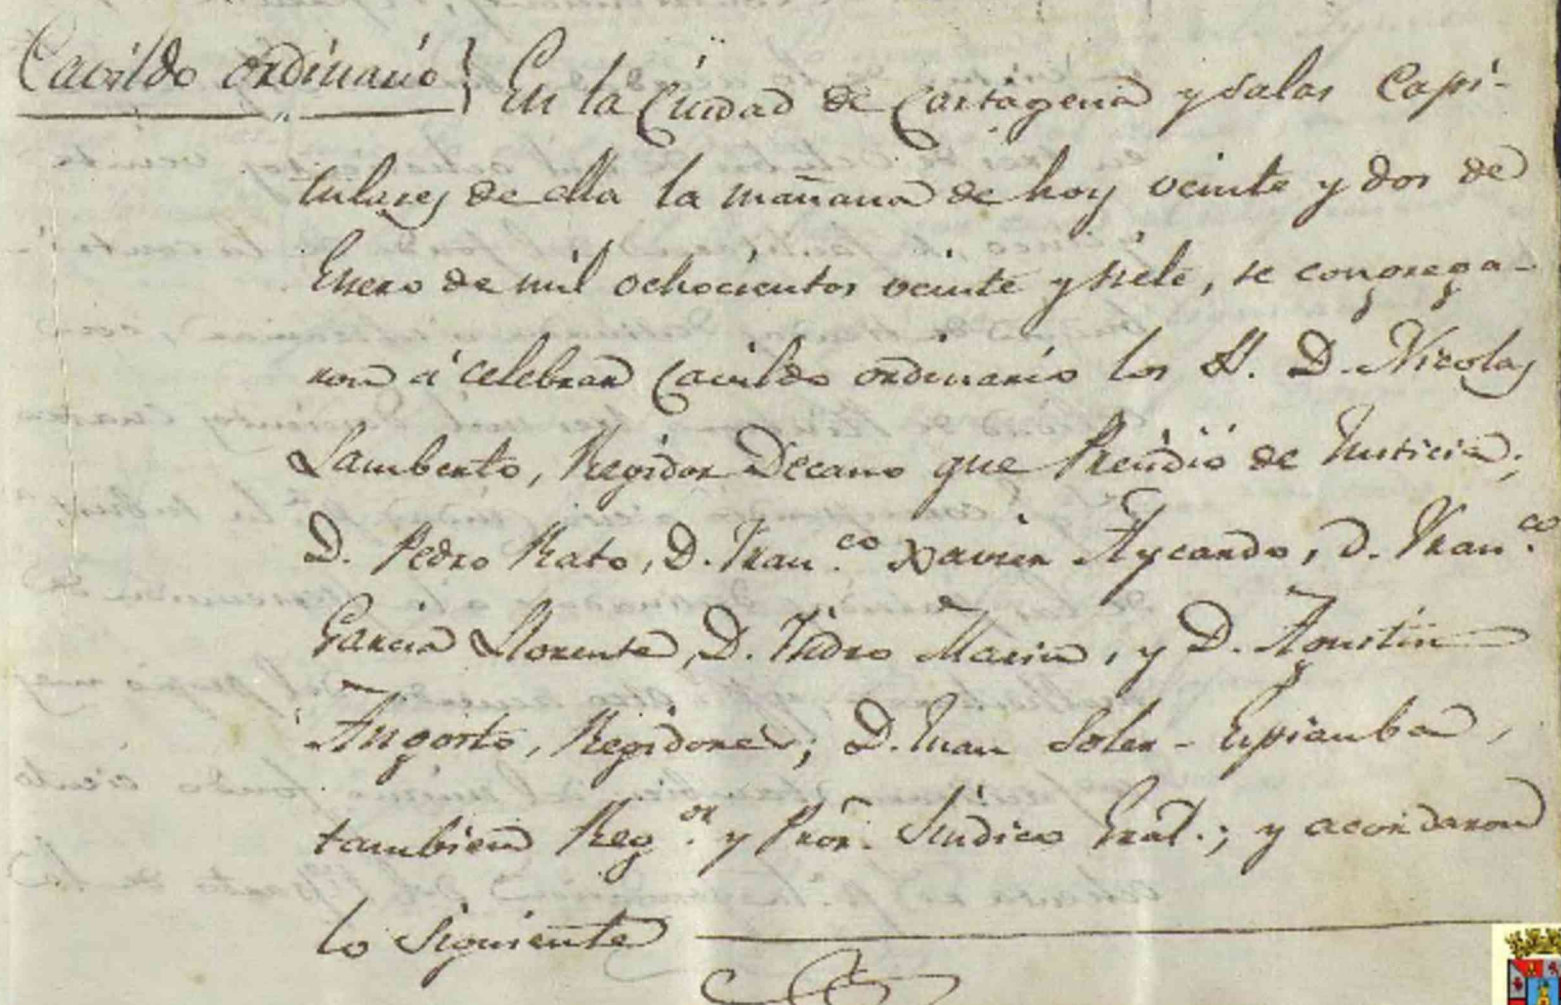 Cavildo ordinario } En la Ciudad de Cartagena y salas Capi-
tulares de ella la mañana de hoy veinte y dos de
Enero de mil ochocientos veinte y siete, se congrega-
ron á celebrar Cavildo ordinario los SS. D. Nicolas
Lamberto, Regidor Decano que Presidió de Justicia;
D. Pedro Rato, D. Fran.co Xavier Aycardo, D. Fran.co
Garcia Llorente, D. Ysidro Marin, y D. Agustin
Regidores; D. Juan Soler-
tambien Reg.or y Pror. Sindico Gral.; y acordaron
lo siguiente